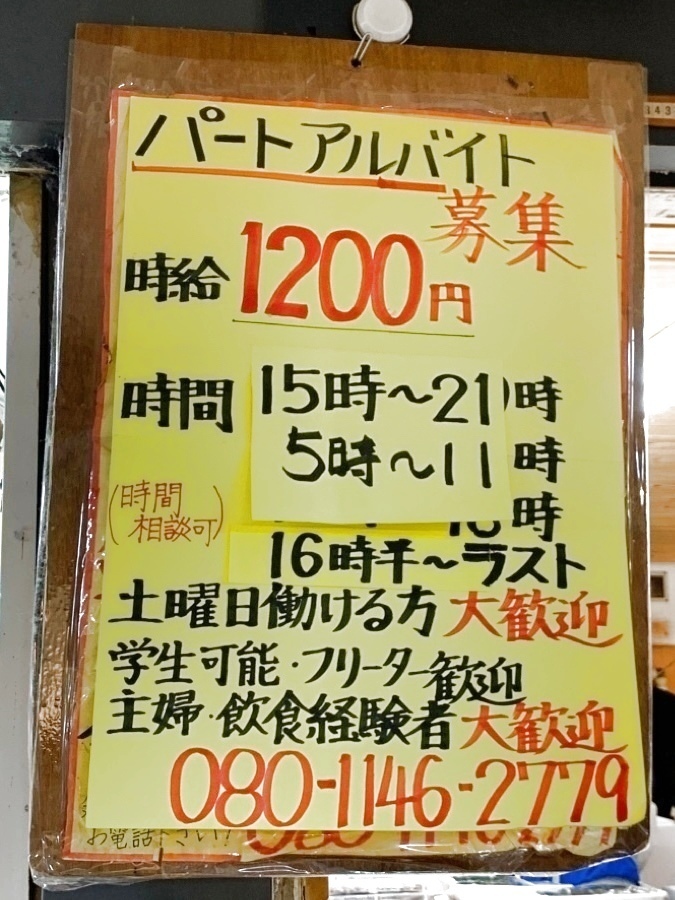 パートアルバイト
募集
時給 1200円
時間 15時～21時
5時～11時
時
(時間
相談可)
16時半～ラスト
土曜日働ける方 大歓迎
学生可能・フリーター歓迎
主婦・飲食経験者 大歓迎
080-1146-2779
お電話下さい!